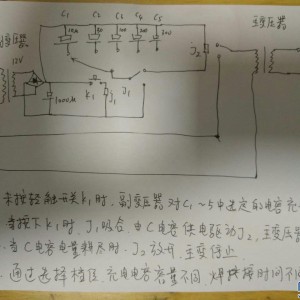 C₁ C₂ C₃ C₄ C₅
主变压器
变压器
12V
1000M
K₁
J₁
J₁
J₂
未按轻触开关K₁时,副变压器对C₁~5中选定的电容充
当按下K₁时,J₁吸合,由C电容供电驱动J₂,主变压器
当C电容电量耗尽时,J₂放开,主变停止
通过选择档位,充电电容容量不同,焊接时间不